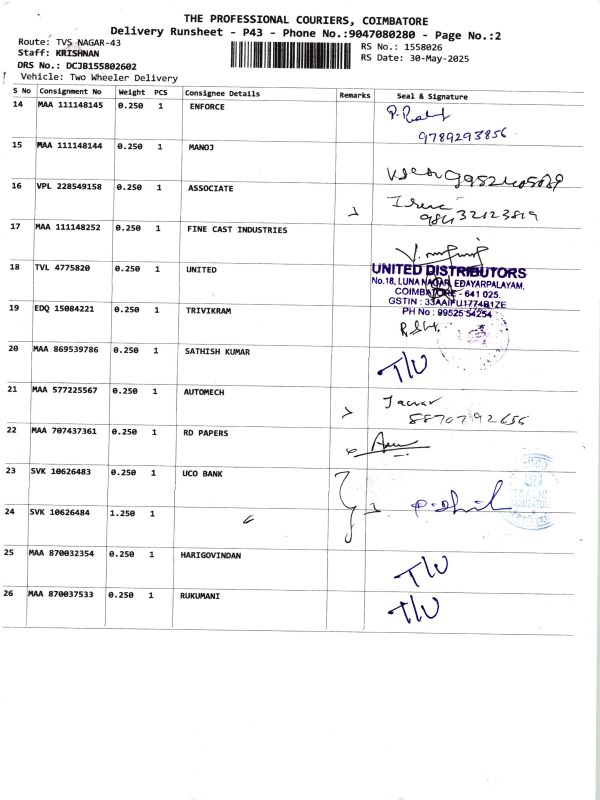 THE PROFESSIONAL COURIERS, COIMBATORE
Delivery Runsheet - P43 - Phone No.:9047080280 - Page No.:2
Route: TVS NAGAR-43
Staff: KRISHNAN
DRS No.: DCJB155802602
Vehicle: Two Wheeler Delivery
RS No.: 1558026
RS Date: 30-May-2025
S No Consignment No Weight PCS Consignee Details Remarks Seal & Signature
14 MAA 111148145 0.250 1 ENFORCE
9789293856
15 MAA 111148144 0.250 1 MANOJ
16 VPL 228549158 0.250 1 ASSOCIATE
17 MAA 111148252 0.250 1 FINE CAST INDUSTRIES
18 TVL 4775820 0.250 1 UNITED
UNITED DISTRIBUTORS
No.18, LUNA NAGAR, EDAYARPALAYAM,
COIMBATORE - 641 025.
GSTIN : 33AAIFU1774B1ZE
PH No : 99525 54254
19 EDQ 15084221 0.250 1 TRIVIKRAM
20 MAA 869539786 0.250 1 SATHISH KUMAR T/U
21 MAA 577225567 0.250 1 AUTOMECH
8870792656
22 MAA 707437361 0.250 1 RD PAPERS
23 SVK 10626483 0.250 1 UCO BANK
24 SVK 10626484 1.250 1
25 MAA 870032354 0.250 1 HARIGOVINDAN T/U
26 MAA 870037533 0.250 1 RUKUMANI T/U